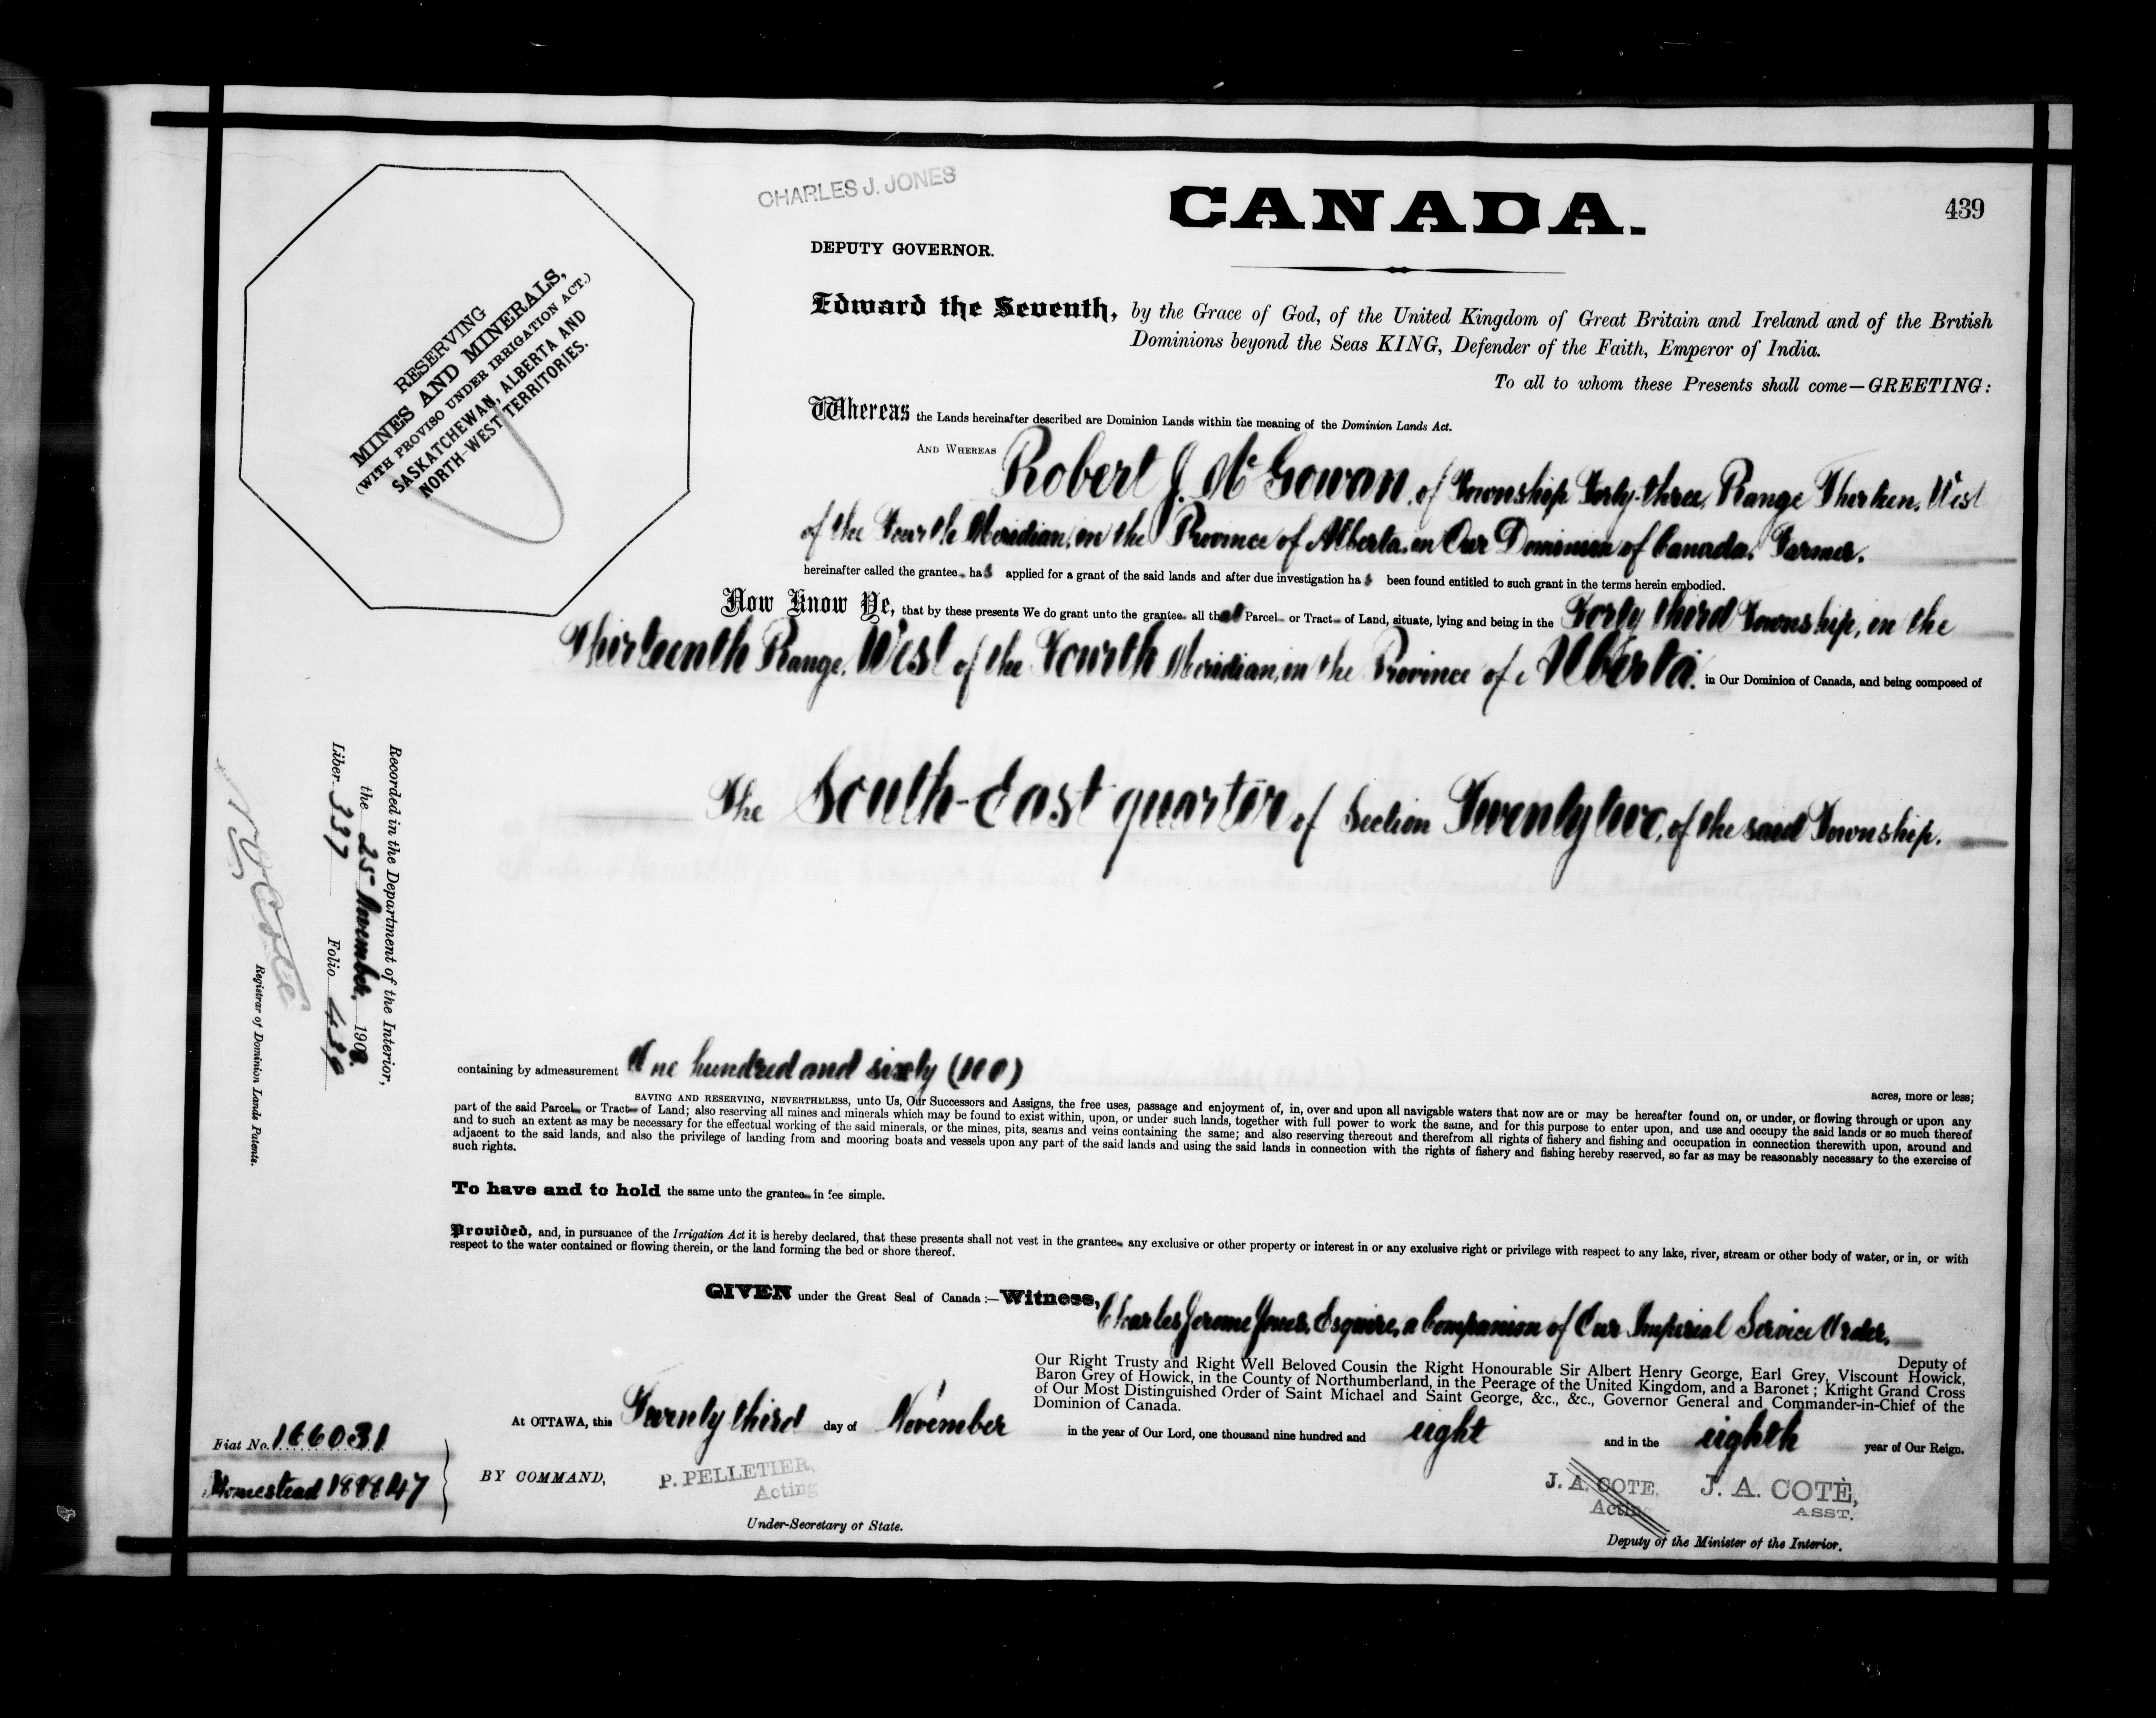 CHARLES J. JONES
CANADA.
439
DEPUTY GOVERNOR.
RESERVING
MINES AND MINERALS,
(WITH PROVISO UNDER IRRIGATION ACT.)
SASKATCHEWAN, ALBERTA AND
NORTH-WEST TERRITORIES.
Edward the Seventh, by the Grace of God, of the United Kingdom of Great Britain and Ireland and of the British
Dominions beyond the Seas KING, Defender of the Faith, Emperor of India.
To all to whom these Presents shall come—GREETING:
Whereas the Lands hereinafter described are Dominion Lands within the meaning of the Dominion Lands Act.
AND WHEREAS Robert J. McGowan, of Township Forty-three, Range Thirteen, West
of the Fourth Meridian, in the Province of Alberta, in Our Dominion of Canada, Farmer.
hereinafter called the grantee has applied for a grant of the said lands and after due investigation has been found entitled to such grant in the terms herein embodied.
Now Know Ye, that by these presents We do grant unto the grantee all that Parcel or Tract of Land, situate, lying and being in the Forty third Township, in the
Thirteenth Range, West of the Fourth Meridian, in the Province of Alberta. in Our Dominion of Canada, and being composed of
The South-East quarter of Section Twenty two, of the said Township.
Recorded in the Department of the Interior,
the 25 November, 1908.
Liber 337 Folio 439
N O Coté
Registrar of Dominion Lands Patents.
containing by admeasurement One hundred and sixty (160) acres, more or less;
SAVING AND RESERVING, NEVERTHELESS, unto Us, Our Successors and Assigns, the free uses, passage and enjoyment of, in, over and upon all navigable waters that now are or may be hereafter found on, or under, or flowing through or upon any
part of the said Parcel or Tract of Land; also reserving all mines and minerals which may be found to exist within, upon, or under such lands, together with full power to work the same, and for this purpose to enter upon, and use and occupy the said lands or so much thereof
and to such an extent as may be necessary for the effectual working of the said minerals, or the mines, pits, seams and veins containing the same; and also reserving thereout and therefrom all rights of fishery and fishing and occupation in connection therewith upon, around and
adjacent to the said lands, and also the privilege of landing from and mooring boats and vessels upon any part of the said lands and using the said lands in connection with the rights of fishery and fishing hereby reserved, so far as may be reasonably necessary to the exercise of
such rights.
To have and to hold the same unto the grantee in fee simple.
Provided, and, in pursuance of the Irrigation Act it is hereby declared, that these presents shall not vest in the grantee any exclusive or other property or interest in or any exclusive right or privilege with respect to any lake, river, stream or other body of water, or in, or with
respect to the water contained or flowing therein, or the land forming the bed or shore thereof.
GIVEN under the Great Seal of Canada:—Witness, Charles Jerome Jones, Esquire, a Companion of Our Imperial Service Order,
Deputy of
Our Right Trusty and Right Well Beloved Cousin the Right Honourable Sir Albert Henry George, Earl Grey, Viscount Howick,
Baron Grey of Howick, in the County of Northumberland, in the Peerage of the United Kingdom, and a Baronet; Knight Grand Cross
of Our Most Distinguished Order of Saint Michael and Saint George, &c., &c., Governor General and Commander-in-Chief of the
Dominion of Canada.
At OTTAWA, this Twenty third day of November in the year of Our Lord, one thousand nine hundred and eight and in the eighth year of Our Reign.
Fiat No. 166031
Homestead 189847
BY COMMAND,
P. PELLETIER,
Acting
Under-Secretary of State.
J. A. COTE,
Acting
J. A. COTÉ,
ASST.
Deputy of the Minister of the Interior.